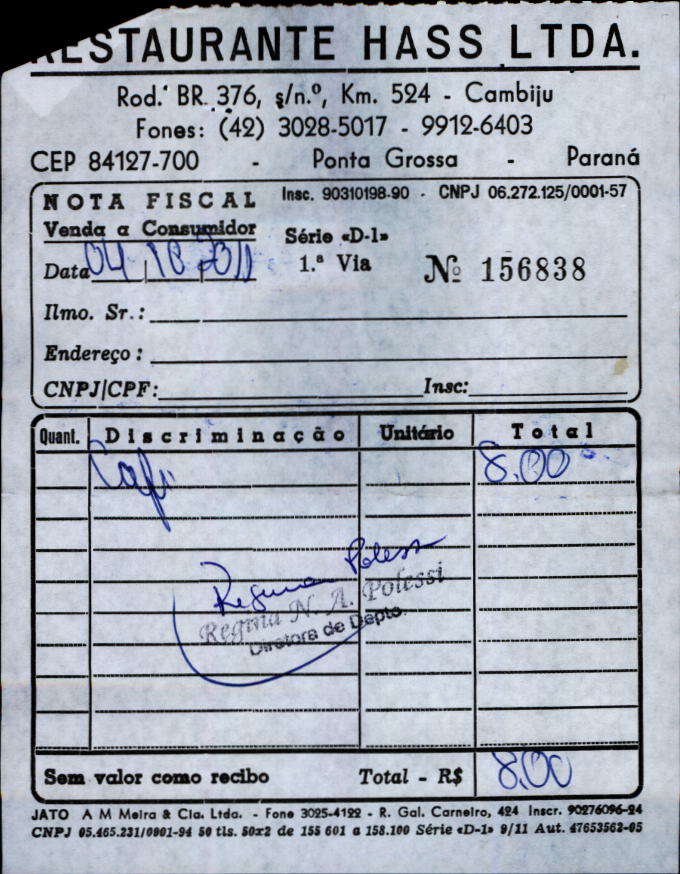 RESTAURANTE HASS LTDA.
Rod. BR. 376, s/n.º, Km. 524 - Cambiju
Fones: (42) 3028-5017 - 9912-6403
CEP 84127-700 - Ponta Grossa - Paraná
NOTA FISCAL Insc. 90310198-90 - CNPJ 06.272.125/0001-57
Venda a Consumidor Série «D-1»
Data 04 10 2011 1.ª Via Nº 156838
Ilmo. Sr.:
Endereço:
CNPJ/CPF: Insc:
Quant. Discriminação Unitário Total
Café 8,00
Regina Polessi
Regina N. A. Polessi
Diretora de Depto.
Sem valor como recibo Total - R$ 8,00
JATO A M Meira & Cia. Ltda. - Fone 3025-4122 - R. Gal. Carneiro, 424 Inscr. 90276096-24
CNPJ 05.465.231/0001-94 50 tls. 50x2 de 155 601 a 158.100 Série «D-1» 9/11 Aut. 47653562-05